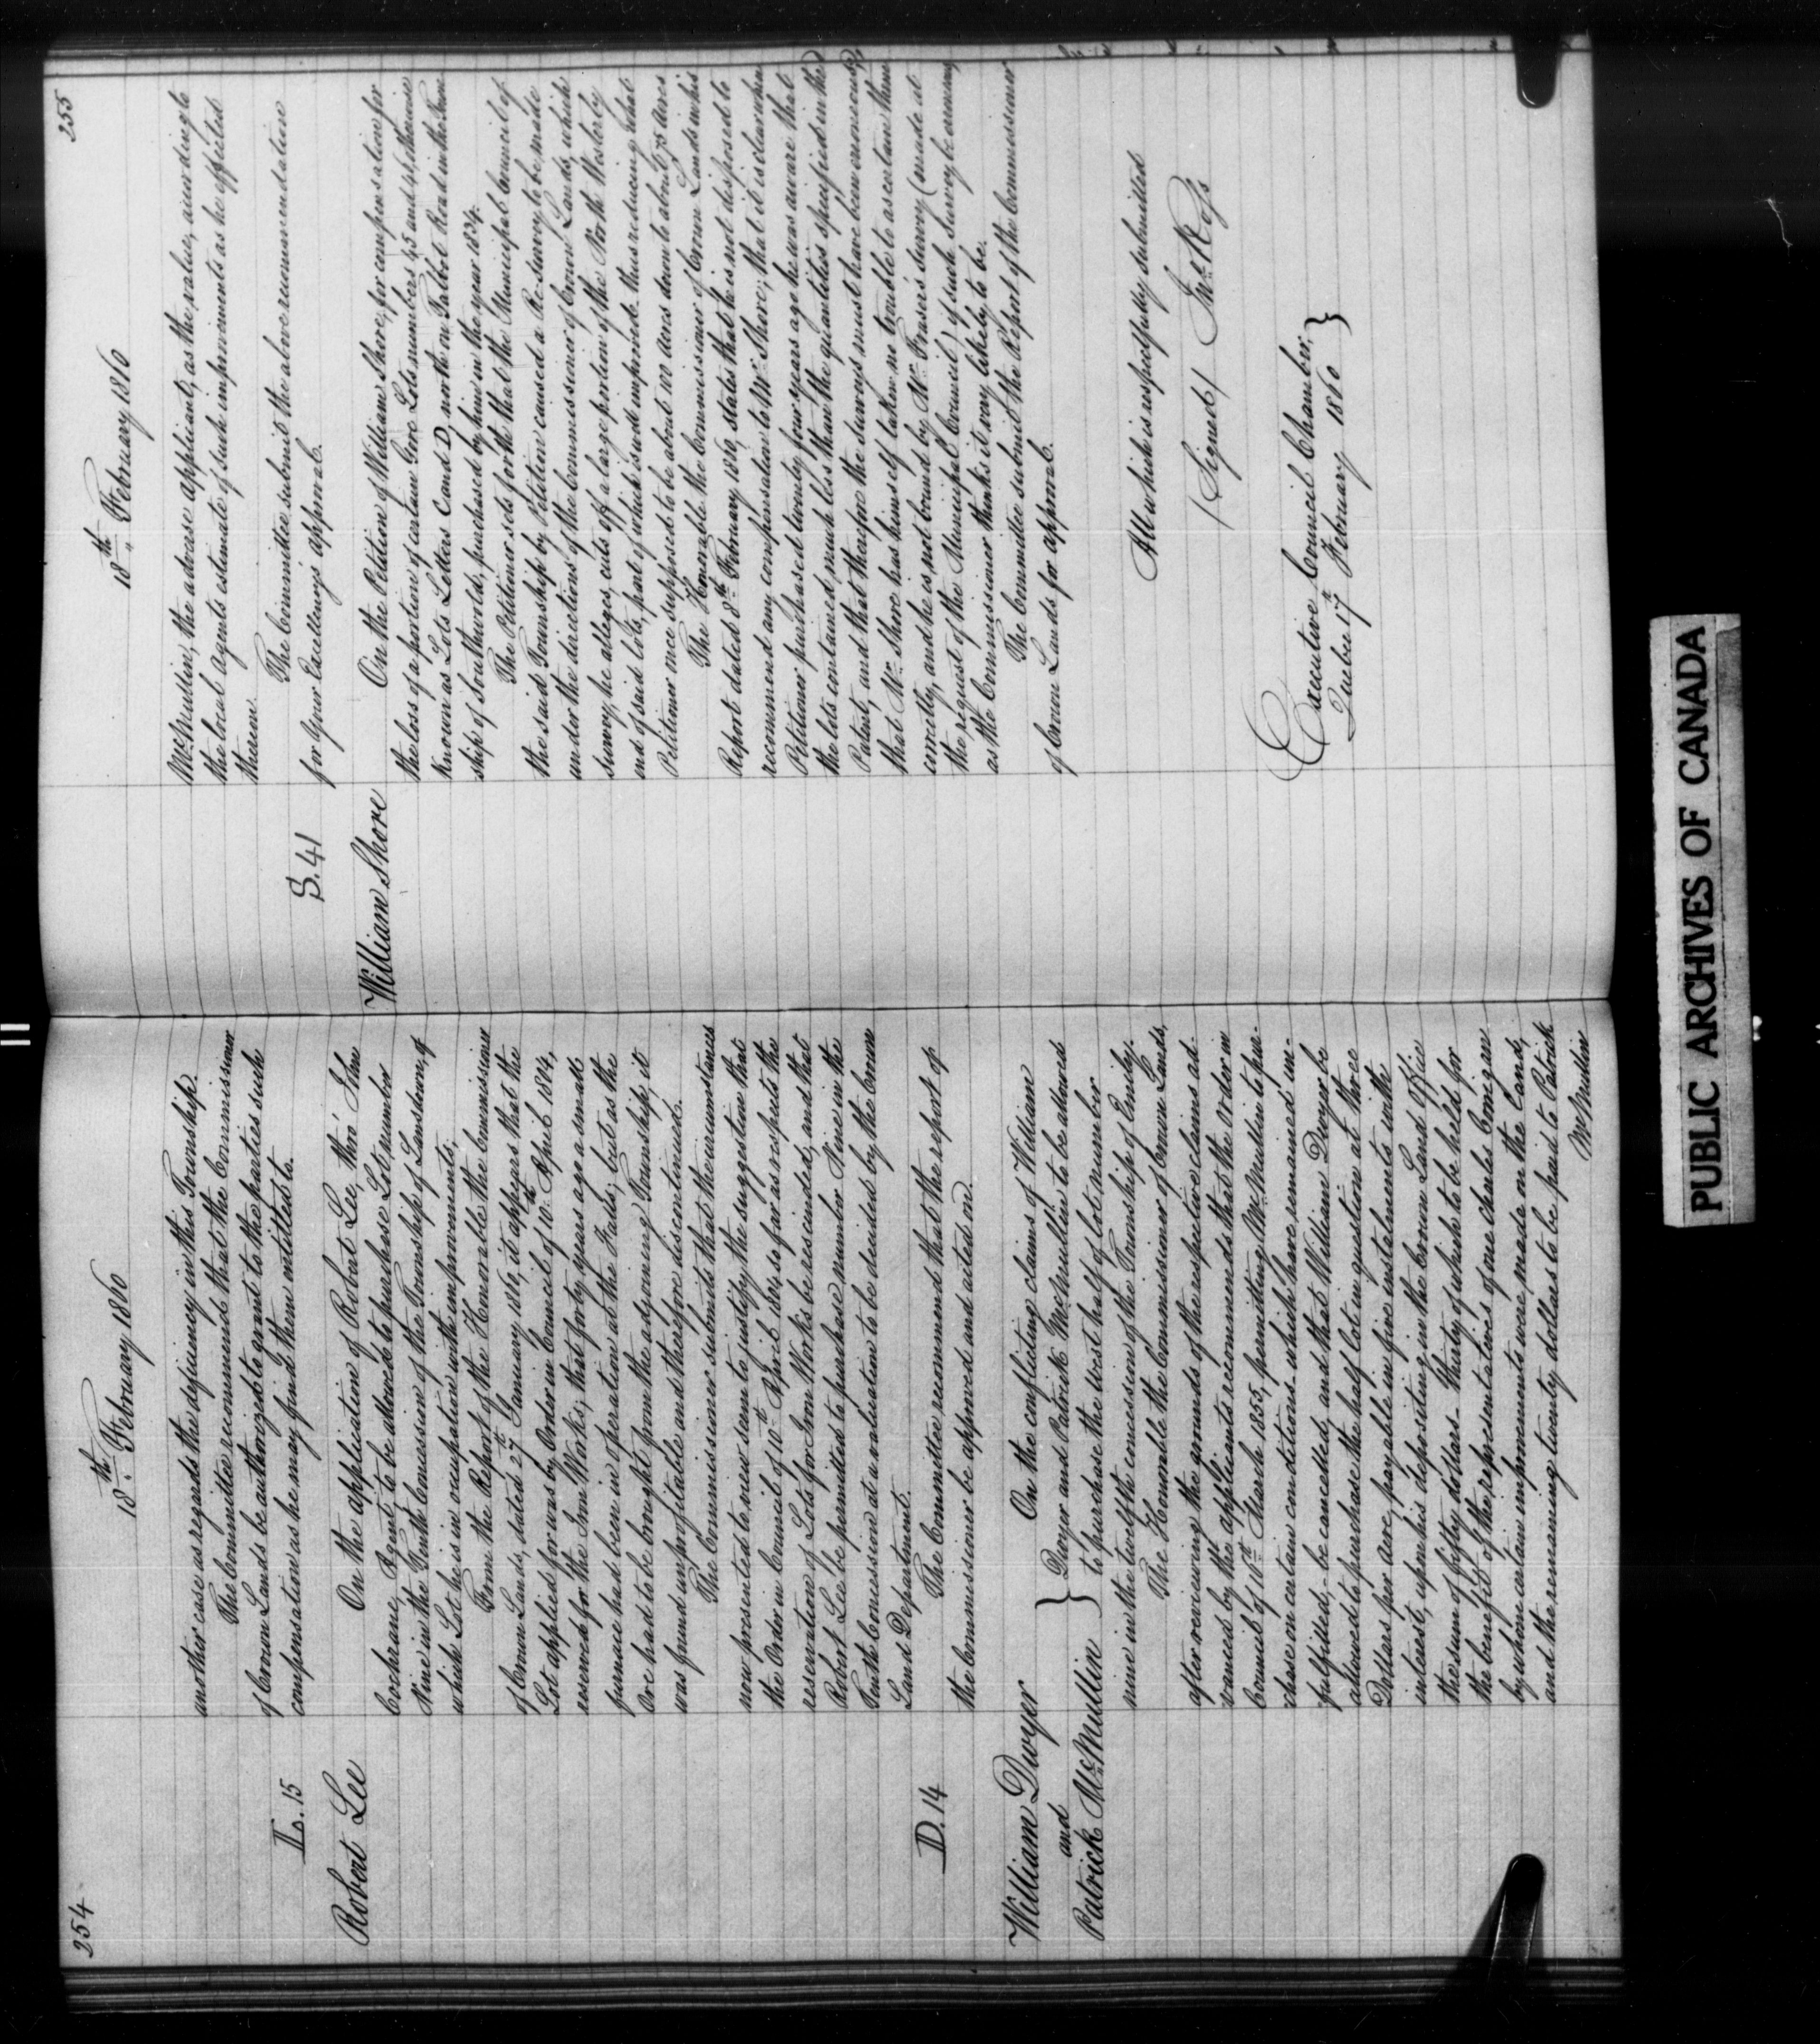 254
18th. February 1860
another case as regards the deficiency in this Township.
The Committee recommend that the Commissioner
of Crown Lands be authorized to grant to the parties such
compensation as he may find them entitled to.
L. 15
Robert Lee
On the application of Robert Lee, thro' John
Cochrane, Agent, to be allowed to purchase Lot number
Nine in the Tenth Concession of the Township of Lansdown, of
which Lot he is in occupation with improvements;
From the Report of the Honorable the Commissioner
of Crown Lands, dated 27th January 1860, it appears that the
Lot applied for was by Order in Council of 10th April 1804,
reserved for the Iron Works; that forty years ago a small
furnace had been in operation at the Falls; but as the
Ore had to be brought from the adjoining Township, it
was found unprofitable and therefore discontinued.
The Commissioner submits that the circumstances
now presented to view seem to justify the suggestion that
the Order in Council of 10th April 1804 so far as respects the
reservation of Lots for Iron Works be rescinded, and that
Robert Lee be permitted to purchase number Nine in the
Tenth Concession at a valuation to be decided by the Crown
Land Department.
The Committee recommend that the report of
the Commissioner be approved and acted on.
D. 14
William Dwyer
and
Patrick McMullin
On the conflicting claims of William
Dwyer and Patrick McMullin to be allowed
to purchase the west half of lot number
nine in the twelfth concession of the Township of Emily.
The Honorable the Commissioner of Crown Lands,
after reviewing the grounds of the respective claims ad-
vanced by the applicants recommends that the Order in
Council of 10th March 1855, permitting McMullin to pur-
chase on certain conditions - which have remained un-
fulfilled, - be cancelled, and that William Dwyer be
allowed to purchase the half lot in question at three
Dollars per acre, payable in five instalments with
interest, upon his depositing in the Crown Land Office
the sum of fifty dollars - thirty of which to be held for
the benefit of the representatives of one Charles Corrigan
by whom certain improvements were made on the land,
and the remaining twenty dollars to be paid to Patrick
McMullin
255
18th. February 1860
McMullin, the adverse applicant, as the value, according to
the local agents estimate of such improvements as he effected
thereon.
The Committee submit the above recommendation
for Your Excellency's approval.
S. 41
William Shore
On the Petition of William Shore, for compensation for
the loss of a portion of certain Gore Lots numbers 45 and 46, otherwise
known as Lots Letters C and D, north on Talbot Road in the Town
ship of Southwold, purchased by him in the year 1834.
The Petitioner sets forth that the Municipal Council of
the said Township by Petition caused a Re-survey to be made
under the directions of the Commissioner of Crown Lands, which
survey, he alleges, cuts off a large portion of the North Westerly
end of said lots, part of which is and improved - thus reducing what
Petitioner once supposed to be about 100 Acres down to about 75 Acres
The Honorable the Commissioner of Crown Lands in his
Report dated 8th February 1860, states that he is not disposed to
recommend any compensation to Mr. Shore; that it is clear when
Petitioner purchased twenty four years ago he was aware that
the lots contained much less than the quantities specified in the
Patent, and that therefore the surveys must have been erroneous,
that Mr. Shore has himself taken no trouble to ascertain them
correctly, and he is not bound by Mr. Fraser's survey (made at
the request of the Municipal Council) if such survey be erroneous
as the Commissioner thinks it very likely to be.
The Committee submit the Report of the Commissioner
of Crown Lands for approval.
All which is respectfully submitted
(Signed) Jno. Ross
Executive Council Chamber,
Quebec 17th February 1860
PUBLIC ARCHIVES OF CANADA